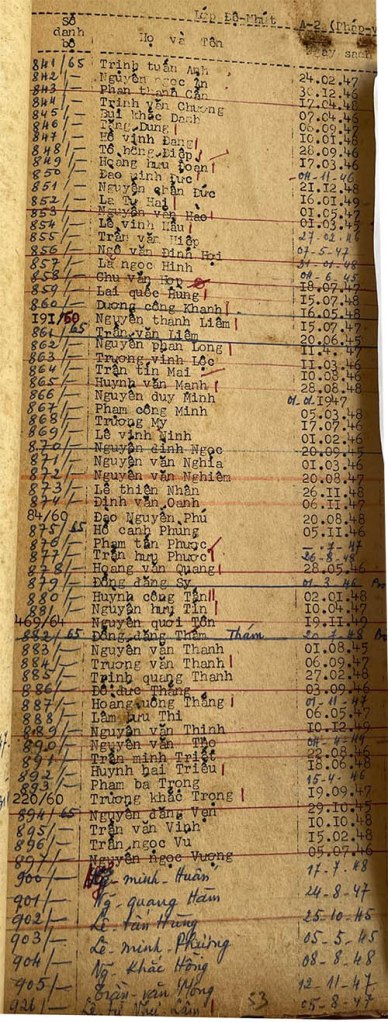 Lớp Đệ-Nhứt A-2 (Pháp-v
Số danh bộ Họ và Tên sanh
841/65 Trinh tuấn Anh
842/— Nguyễn ngọc Ấn 24.02.47
843/— Phan thanh Cần 30.12.46
844/— Trinh văn Chương 17.04.48
845/— Bùi khắc Danh 07.04.46
846/— Tăng Dung 06.09.47
847/— Hồ vinh Đang 10.01.48
848/— Tô hồng Điệp 28.09.46
849/— Hoàng hữu Đoan 17.03.46
850/— Đào vinh Đức 04-11-46
851/— Nguyễn chân Đức 21.12.48
852/— La Tư Hai 16.01.49
853/— Nguyễn văn Hào 01.05.47
854/— Lê vinh Hầu 01.03.45
855/— Trần văn Hiệp 27-02-46
856/— Ngô văn Đinh Hợi 07-5-47
857/— La ngọc Hinh 21-01-48
858/— Chu văn Hợp 04-6-45
859/— Lai quốc Hùng 18.07.47
860/— Dương công Khanh 15.07.48
191/60 Nguyễn thanh Liêm 16.05.48
861/65 Trần văn Liêm 15.07.47
862/— Nguyễn phan Long 20.06.45
863/— Trương vinh Lộc 11.4.47
864/— Trần tín Mai 11.03.46
865/— Huỳnh văn Mạnh 10.08.46
866/— Nguyễn duy Minh 28.08.48
867/— Phạm công Minh 01.01.1947
868/— Trương My 05.03.48
869/— Lê vinh Ninh 17.07.46
870/— Nguyễn đình Ngọc 01.02.46
871/— Nguyễn văn Nghĩa 20.09.45
872/— Nguyễn văn Nghiêm 01.03.46
873/— Lê thiện Nhân 20.08.47
874/— Đinh văn Oanh 26.11.48
84/60 Đạo Nguyên Phú 06.11.47
875/65 Hồ cảnh Phung 20.08.48
876/— Phạm tấn Phước 05.11.48
877/— Trần hữu Phước 26-8-48
878/— Hoàng văn Quang 28.05.46
879/— Đồng đăng Sy 01-3-46
880/— Huỳnh công Tân 02.01.48
881/— Nguyễn hữu Tín 10.04.47
469/64 Nguyễn quới Tôn 19.11.49
882/65 Đồng đăng Thêm Thám 20-7-48
883/— Nguyễn văn Thanh 01.08.45
884/— Trương văn Thanh 06.09.47
885/— Trinh quang Thanh 27.02.48
886/— Đỗ đức Thắng 03.09.46
887/— Hoàng uông Thắng 01-11-47
888/— Lâm hữu Thi 06.05.47
889/— Nguyễn văn Thinh 10.12.49
890/— Nguyễn văn Thọ 04-4-49
891/— Trần minh Triết 22.08.46
892/— Huỳnh hai Triều 18.06.48
893/— Phạm ba Trong 15-4-46
220/60 Trương khắc Trọng 19.09.47
894/65 Nguyễn đăng Vẹn 29.10.45
895/— Trần văn Vinh 10.10.48
896/— Trần ngọc Vu 15.02.48
897/— Nguyễn ngọc Vượng 05.07.46
900/— Ng- minh- Huân 17.7.48
901/— Ng- quang Hàm 24-8-47
902/— Lê- tấn Hùng 25-10-45
903/— Lê- minh Phương 05-5-45
904/— Ng- Khắc Hồng 08-8-48
905/— Trần- văn Mông 12-11-47
921/— Lê tự 53 05-8-47